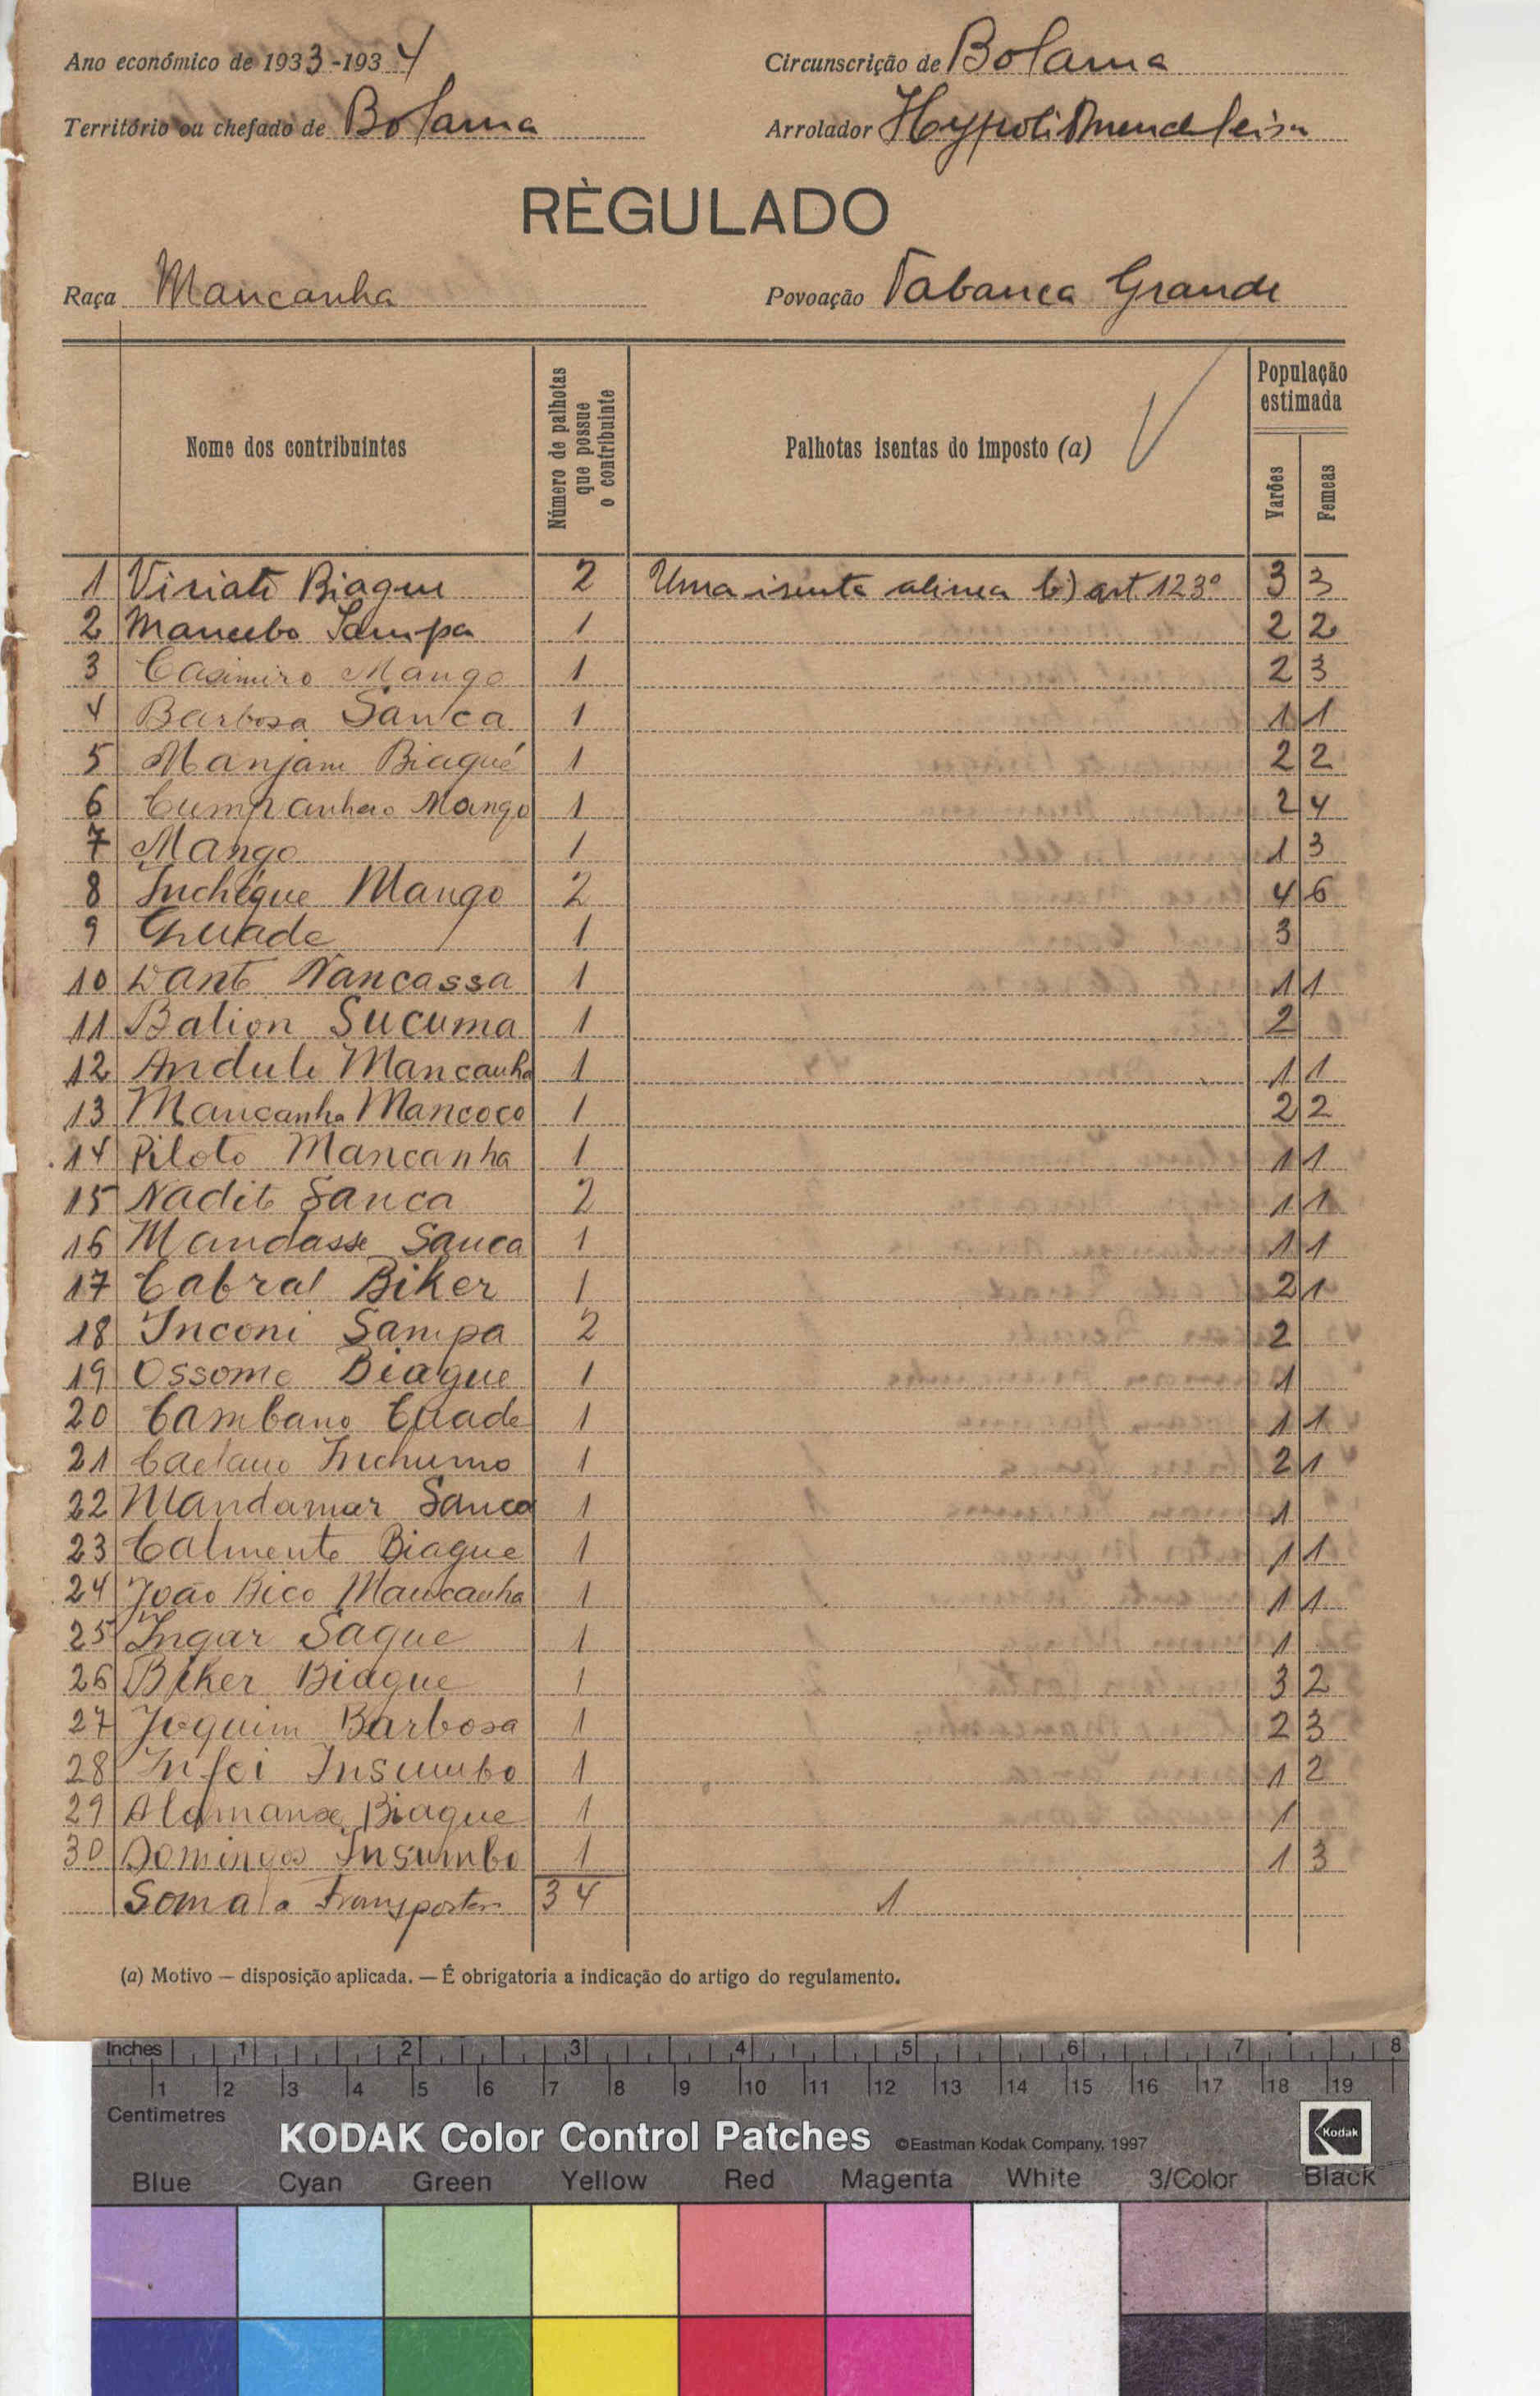 Ano económico de 1933-1934
Circunscrição de Bolama
Território ou chefado de Bolama
Arrolador
RÈGULADO
Raça Mancanha
Povoação Tabanca Grande
Nome dos contribuintes
Número de palhotas que possue o contribuinte
Palhotas isentas do imposto (a)
População estimada
Varões
Femeas
1 Viriato Biague 2 Uma isenta alinea b) art. 123º 3 3
2 Mancebo Sampa 1 2 2
3 Casimiro Mango 1 2 3
4 Barbosa Sanca 1 1 1
5 Manjam Biagué 1 2 2
6 Cumpanhero Mango 1 2 4
7 Mango 1 1 3
8 Inchéque Mango 2 4 6
9 1 3
10 Nancassa 1 1 1
11 Balion Sucuma 1 2
12 Andule Mancanha 1 1 1
13 Mancanha Mancoco 1 2 2
14 Piloto Mancanha 1 1 1
15 Nadit Sanca 2 1 1
16 Mandasse Sanca 1 1 1
17 Cabral Biker 1 2 1
18 Inconi Sampa 2 2
19 Ossome Biague 1 1
20 Cambano Cuade 1 1 1
21 Caetano Inchumo 1 2 1
22 Mandamar Sanca 1 1
23 Calmento Biague 1 1 1
24 João Bico Mancanha 1 1 1
25 Ingar Sague 1 1
26 Biker Biague 1 3 2
27 Joquim Barbosa 1 2 3
28 Infei Insumbo 1 1 2
29 Biague 1 1
30 Domingos Insumbo 1 1 3
Soma a transportar 34 1
(a) Motivo — disposição aplicada. — É obrigatoria a indicação do artigo do regulamento.
Inches 1 2 3 4 5 6 7 8
1 2 3 4 5 6 7 8 9 10 11 12 13 14 15 16 17 18 19
Centimetres
KODAK Color Control Patches ©Eastman Kodak Company, 1997 Kodak
Blue Cyan Green Yellow Red Magenta White 3/Color Black